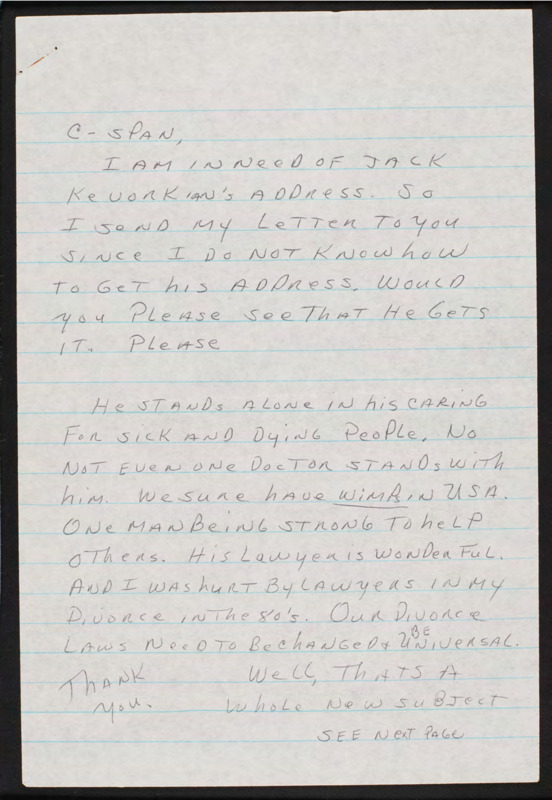 C-SPAN,
I AM IN NEED OF JACK
KEVORKIAN'S ADDRESS. SO
I SEND MY LETTER TO YOU
SINCE I DO NOT KNOW HOW
TO GET HIS ADDRESS. WOULD
YOU PLEASE SEE THAT HE GETS
IT. PLEASE
HE STANDS ALONE IN HIS CARING
FOR SICK AND DYING PEOPLE. NO
NOT EVEN ONE DOCTOR STANDS WITH
HIM. WE SURE HAVE WIMPS IN USA.
ONE MAN BEING STRONG TO HELP
OTHERS. HIS LAWYER IS WONDERFUL.
AND I WAS HURT BY LAWYERS IN MY
DIVORCE IN THE 80'S. OUR DIVORCE
LAWS NEED TO BE CHANGED & BE UNIVERSAL.
THANK YOU.
WELL, THATS A
WHOLE NEW SUBJECT
SEE NEXT PAGE